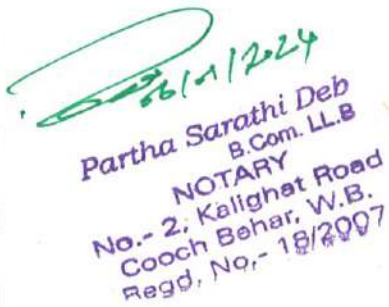 06/01/2024
Partha Sarathi Deb
B.Com. LL.B
NOTARY
No.- 2, Kalighat Road
Cooch Behar, W.B.
Regd, No,- 18/2007